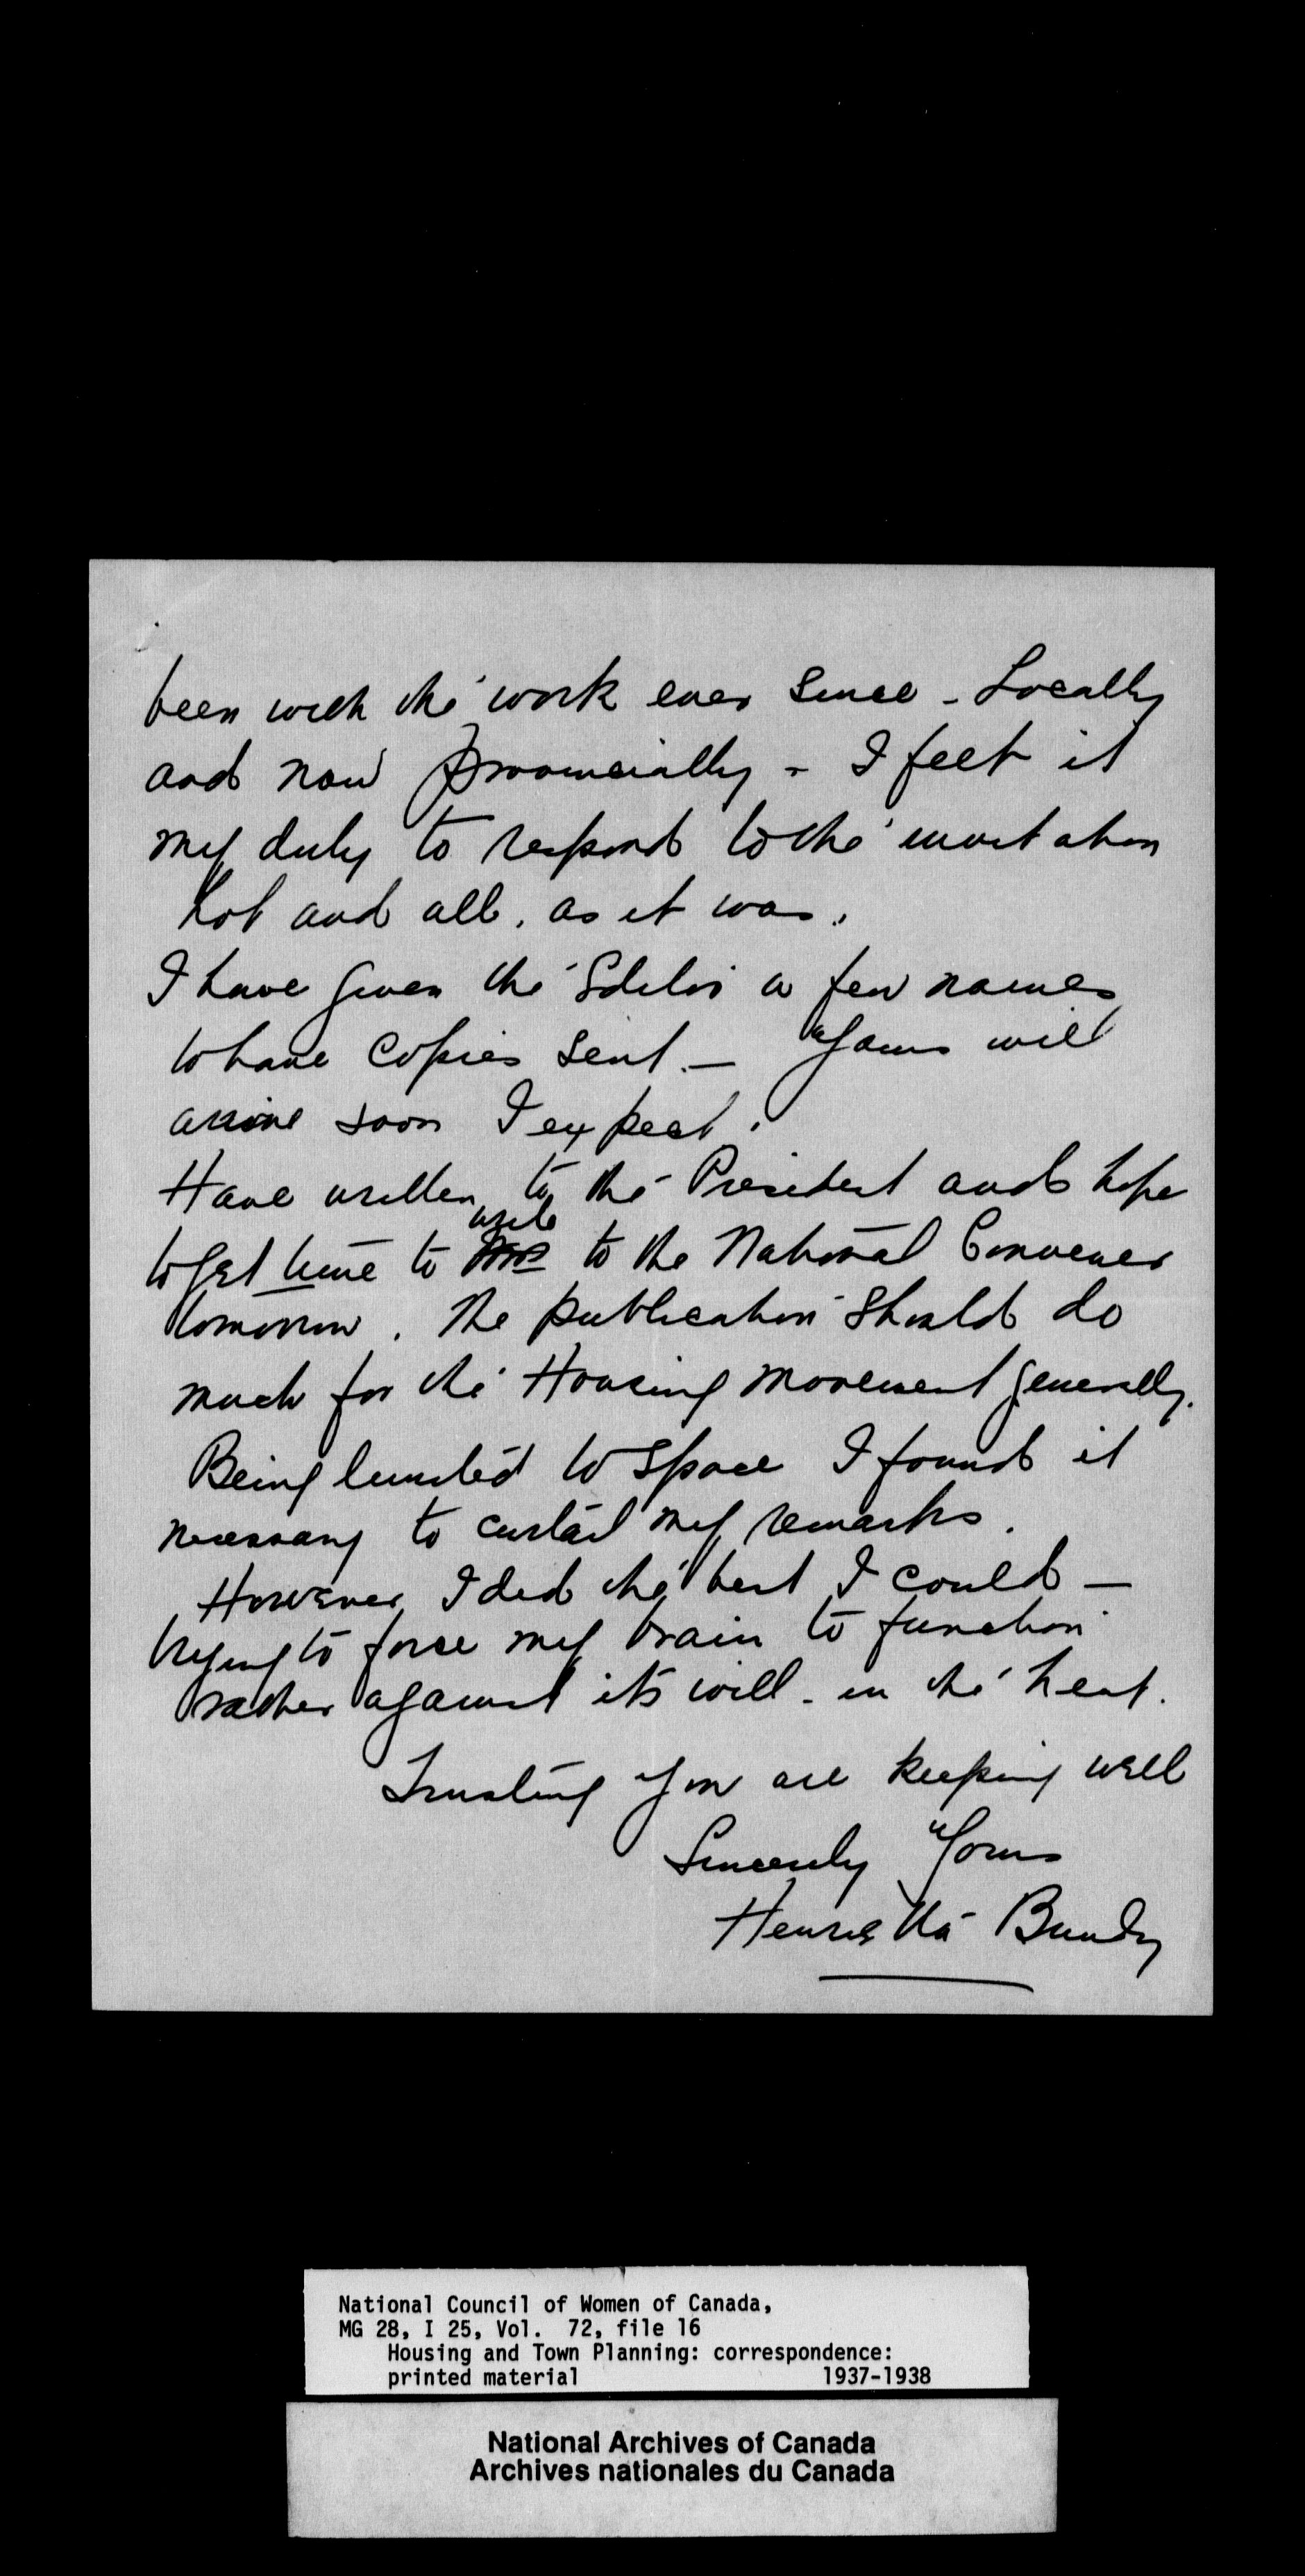 been with the work ever since - Locally
and now provincially - I felt it
my duty to respond to the invitation
hot and all, as it was.
I have given the Editor a few names
to have copies sent. — Yours will
arrive soon I expect.
Have written to the President and hope
to get time to write to the National Convener
tomorrow. The publication should do
much for the Housing movement generally.
Being limited to space I found it
necessary to curtail my remarks.
However I did the best I could —
trying to force my brain to function
rather against its will - in the heat.
Trusting you are keeping well
Sincerely Yours
Henrietta Bundy
National Council of Women of Canada,
MG 28, I 25, Vol. 72, file 16
Housing and Town Planning: correspondence:
printed material 1937-1938
National Archives of Canada
Archives nationales du Canada